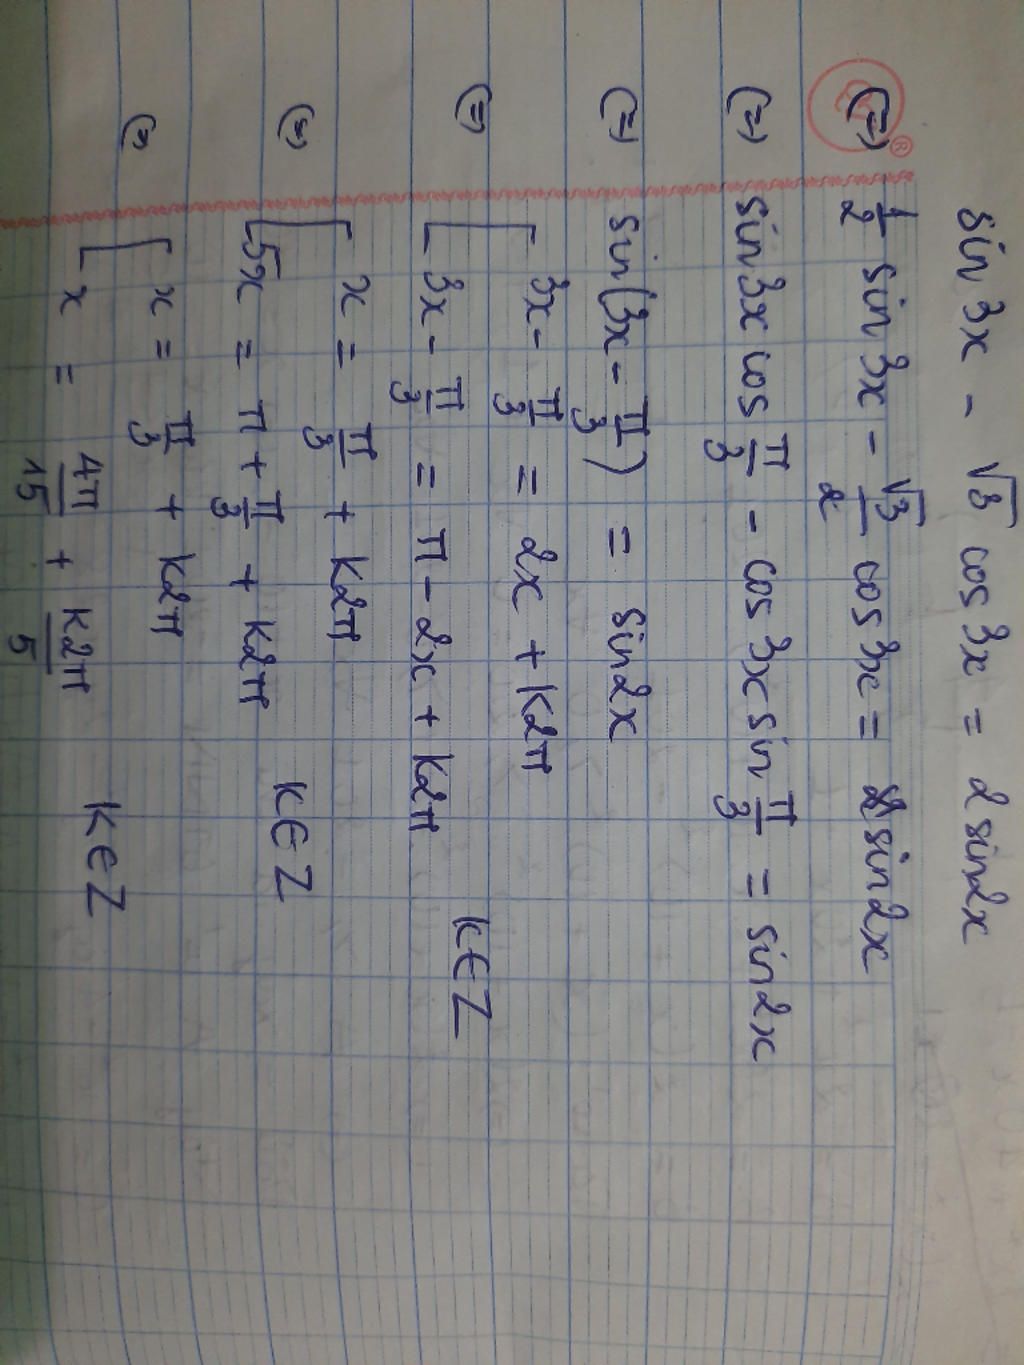 sin 3x - √3 cos 3x = 2 sin2x
(=) 1/2 sin 3x - √3/2 cos 3x = sin2x
(=) sin 3x cos π/3 - cos 3x sin π/3 = sin2x
(=) sin(3x - π/3) = sin2x
(=) [ 3x - π/3 = 2x + k2π
3x - π/3 = π - 2x + k2π k∈Z
(=) [ x = π/3 + k2π
5x = π + π/3 + k2π k∈Z
(=) [ x = π/3 + k2π
x = 4π/15 + k2π/5 k∈Z